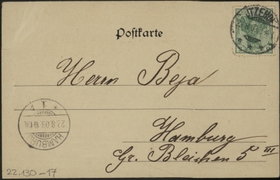 Postkarte
Herrn Beja
Hamburg
Gr. Bleichen 5 III
HAMBURG
22.130-17